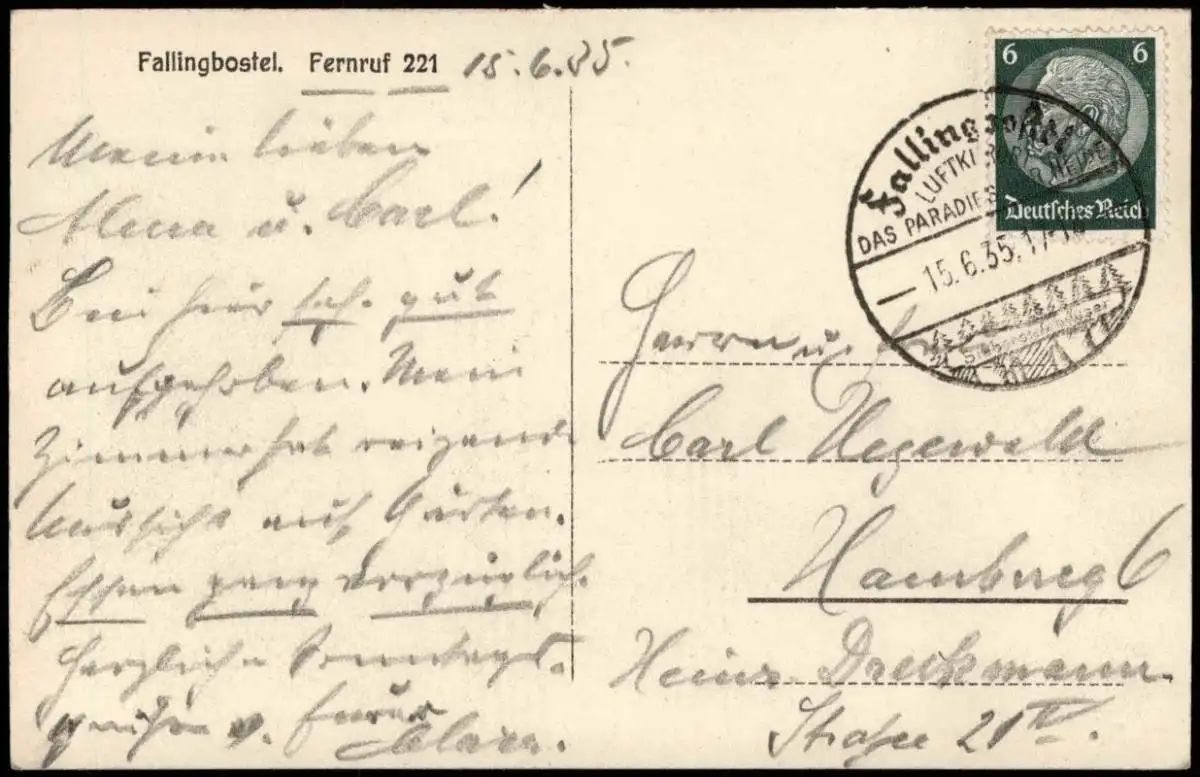 Fallingbostel. Fernruf 221 15.6.35.
Meine lieben
Alma u. Carl!
Bin hier sehr gut
aufgehoben. Mein
Zimmer hat reizende
Aussicht auf Garten.
Essen ganz vorzüglich.
Herzliche Sonntags-
grüße v. Eurer
Clara.
6 6
Deutsches Reich
Fallingbostel
LUFTKURORT
DAS PARADIES HEIDE
15.6.35. 17-18
Herrn u. Fr.
Carl Hegewald
Hamburg 6
Heinr. Dreckmann
Straße 21 IV.